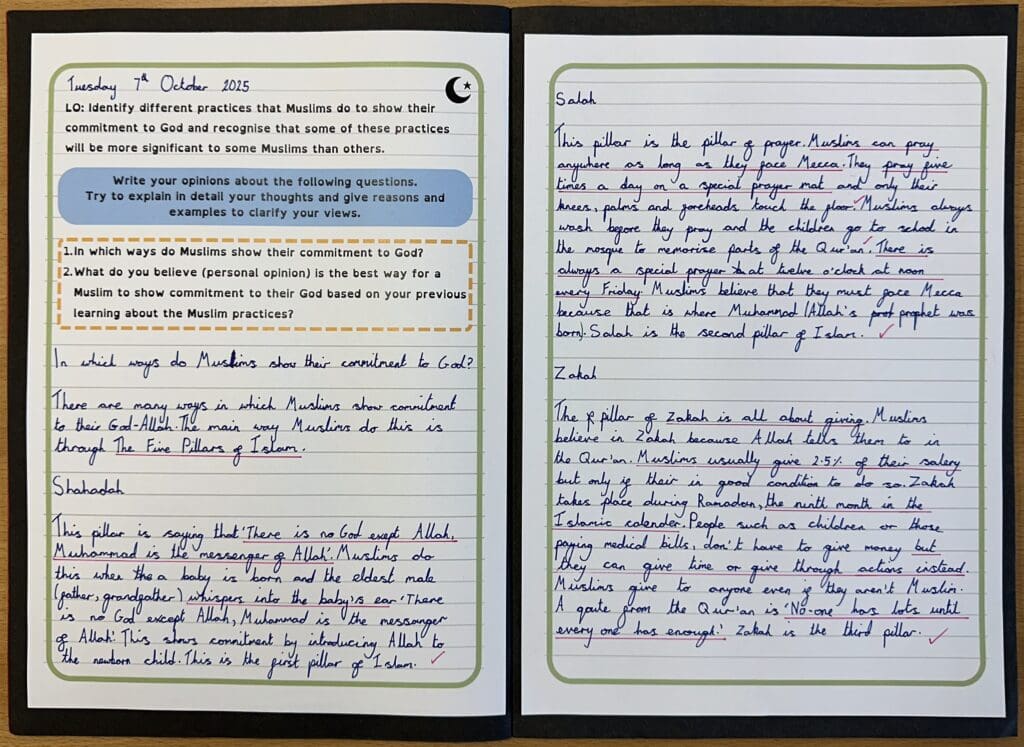 Tuesday 7th October 2025
LO: Identify different practices that Muslims do to show their
commitment to God and recognise that some of these practices
will be more significant to some Muslims than others.
Write your opinions about the following questions.
Try to explain in detail your thoughts and give reasons and
examples to clarify your views.
1.In which ways do Muslims show their commitment to God?
2.What do you believe (personal opinion) is the best way for a
Muslim to show commitment to their God based on your previous
learning about the Muslim practices?
In which ways do Muslims show their commitment to God?
There are many ways in which Muslims show commitment
to their God-Allah. The main way Muslims do this is
through The Five Pillars of Islam.
Shahadah
This pillar is saying that 'There is no God except Allah,
Muhammad is the messenger of Allah'. Muslims do
this when the a baby is born and the eldest male
(father, grandfather) whispers into the baby's ear 'There
is no God except Allah, Muhammad is the messenger
of Allah'. This shows commitment by introducing Allah to
the newborn child. This is the first pillar of Islam.
Salah
This pillar is the pillar of prayer. Muslims can pray
anywhere as long as they face Mecca. They pray five
times a day on a special prayer mat and only their
knees, palms and foreheads touch the floor. Muslims always
wash before they pray and the children go to school in
the mosque to memorise parts of the Qur'an. There is
always a special prayer at twelve o'clock at noon
every Friday. Muslims believe that they must face Mecca
because that is where Muhammad (Allah's prof prophet was
born). Salah is the second pillar of Islam.
Zakah
The pillar of Zakah is all about giving. Muslims
believe in Zakah because Allah tells them to in
the Qur'an. Muslims usually give 2.5% of their salery
but only if their in good condition to do so. Zakah
takes place during Ramadan, the ninth month in the
Islamic calender. People such as children or those
paying medical bills, don't have to give money but
they can give time or give through actions instead.
Muslims give to anyone even if they aren't Muslim.
A qoute from the Qur'an is 'No-one has lots until
every one has enough.' Zakah is the third pillar.